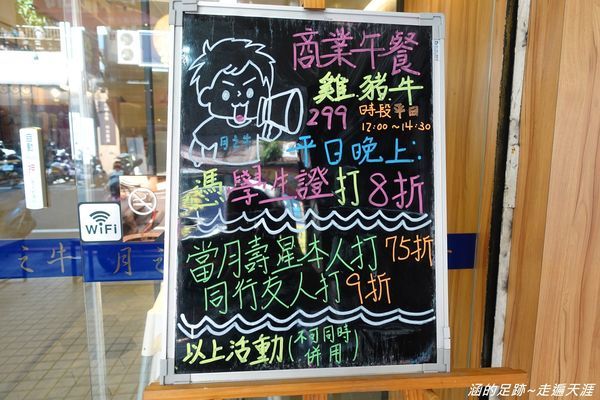 商業午餐
雞.豬.牛
299 時段平日
12:00~14:30
月之牛
平日晚上:
憑學生證打8折
當月壽星本人打75折
同行友人打9折
以上活動(不可同時併用)
WiFi
之牛 月之
涵的足跡~走遍天涯